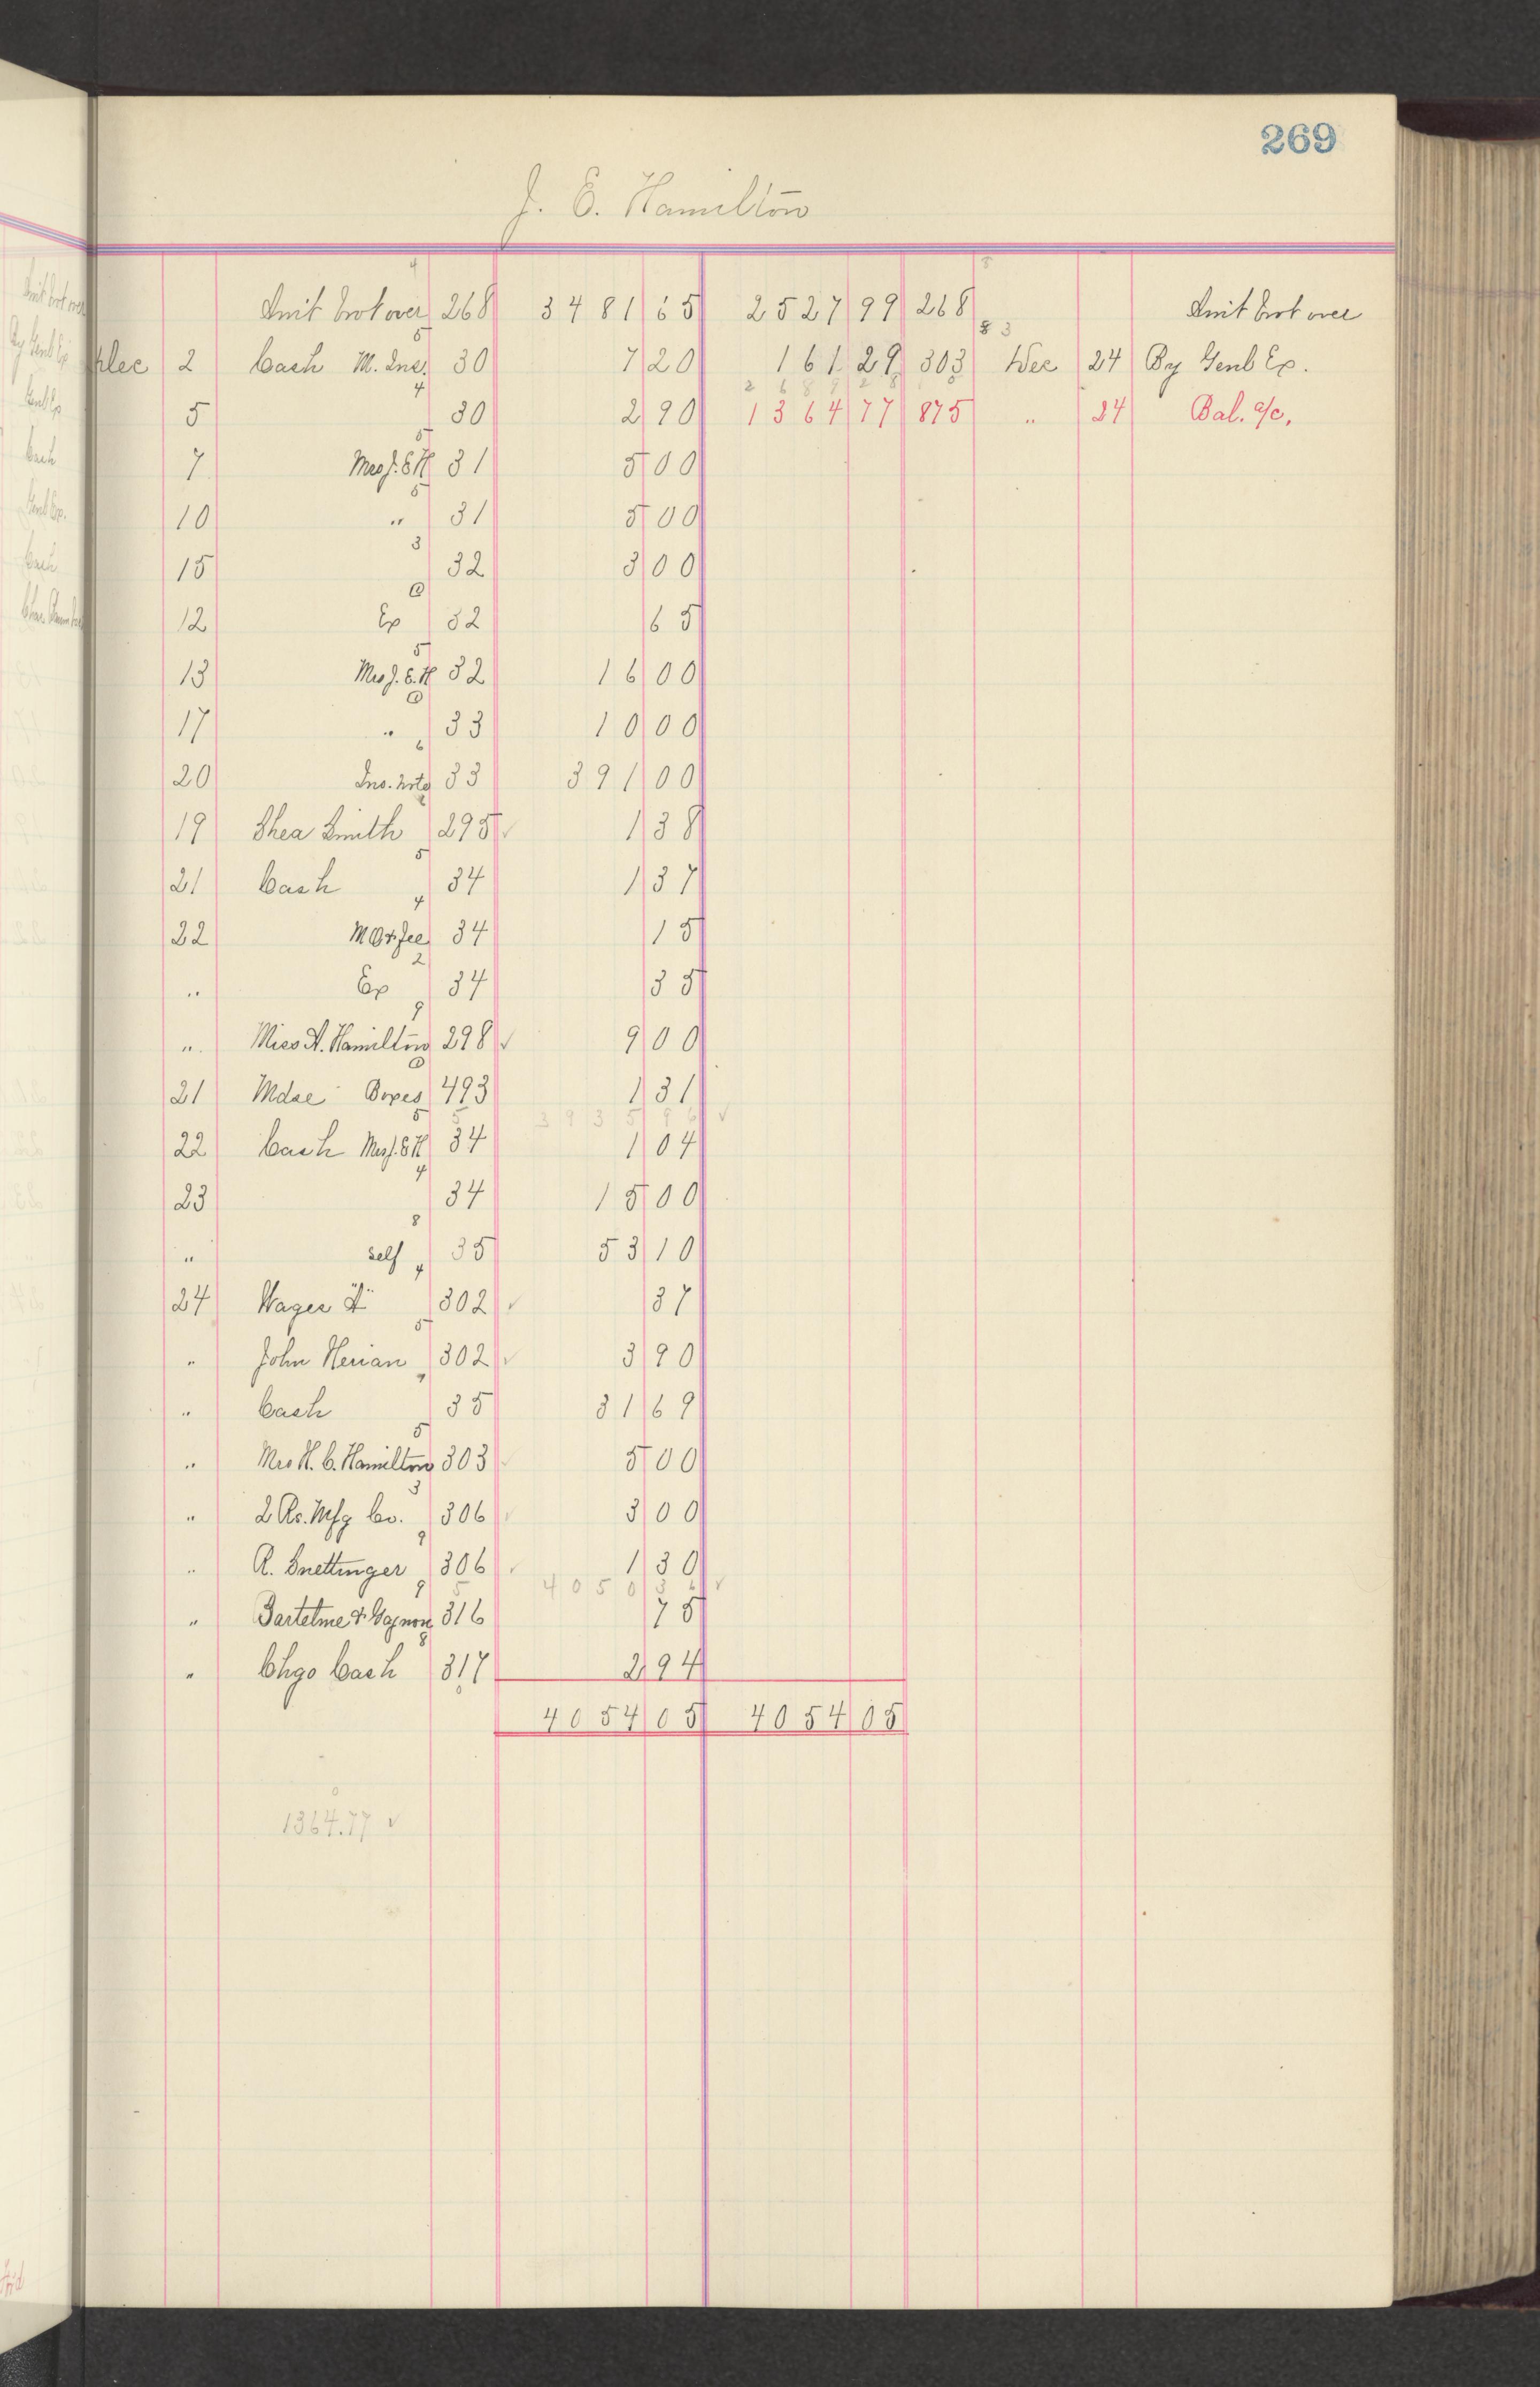 269
J. E. Hamilton
Amt brot over 268 3481 65 2527 99 268 Amt brot over
Dec 2 Cash M. Ins. 30 7 20 161 29 303 Dec 24 By Genl Ex.
2689 28
5 30 2 90 1364 77 875 " 24 Bal. a/c.
7 Mrs J. E. H 31 5 00
10 " 31 5 00
15 32 3 00
12 Ex 32 65
13 Mrs J. E. H 32 16 00
17 " 33 10 00
20 Ins. note 33 391 00
19 Shea Smith 295 ✓ 1 38
21 Cash 34 1 37
22 34 15
" Ex 34 35
" Miss A. Hamilton 298 ✓ 9 00
21 Mdse Boxes 493 1 31
3935 96 ✓
22 Cash Mrs J. E. H 34 1 04
23 34 15 00
" Self 35 53 10
24 Wages 302 ✓ 37
" John Herian 302 ✓ 3 90
" Cash 35 31 69
" Mrs H. C. Hamilton 303 5 00
" 2 Rs. Mfg Co. 306 3 00
" R. Snettinger 306 ✓ 1 30
4050 36 ✓
" Bartelme & Gagnon 316 75
" Chgo Cash 317 2 94
4054 05 4054 05
1364.77 ✓